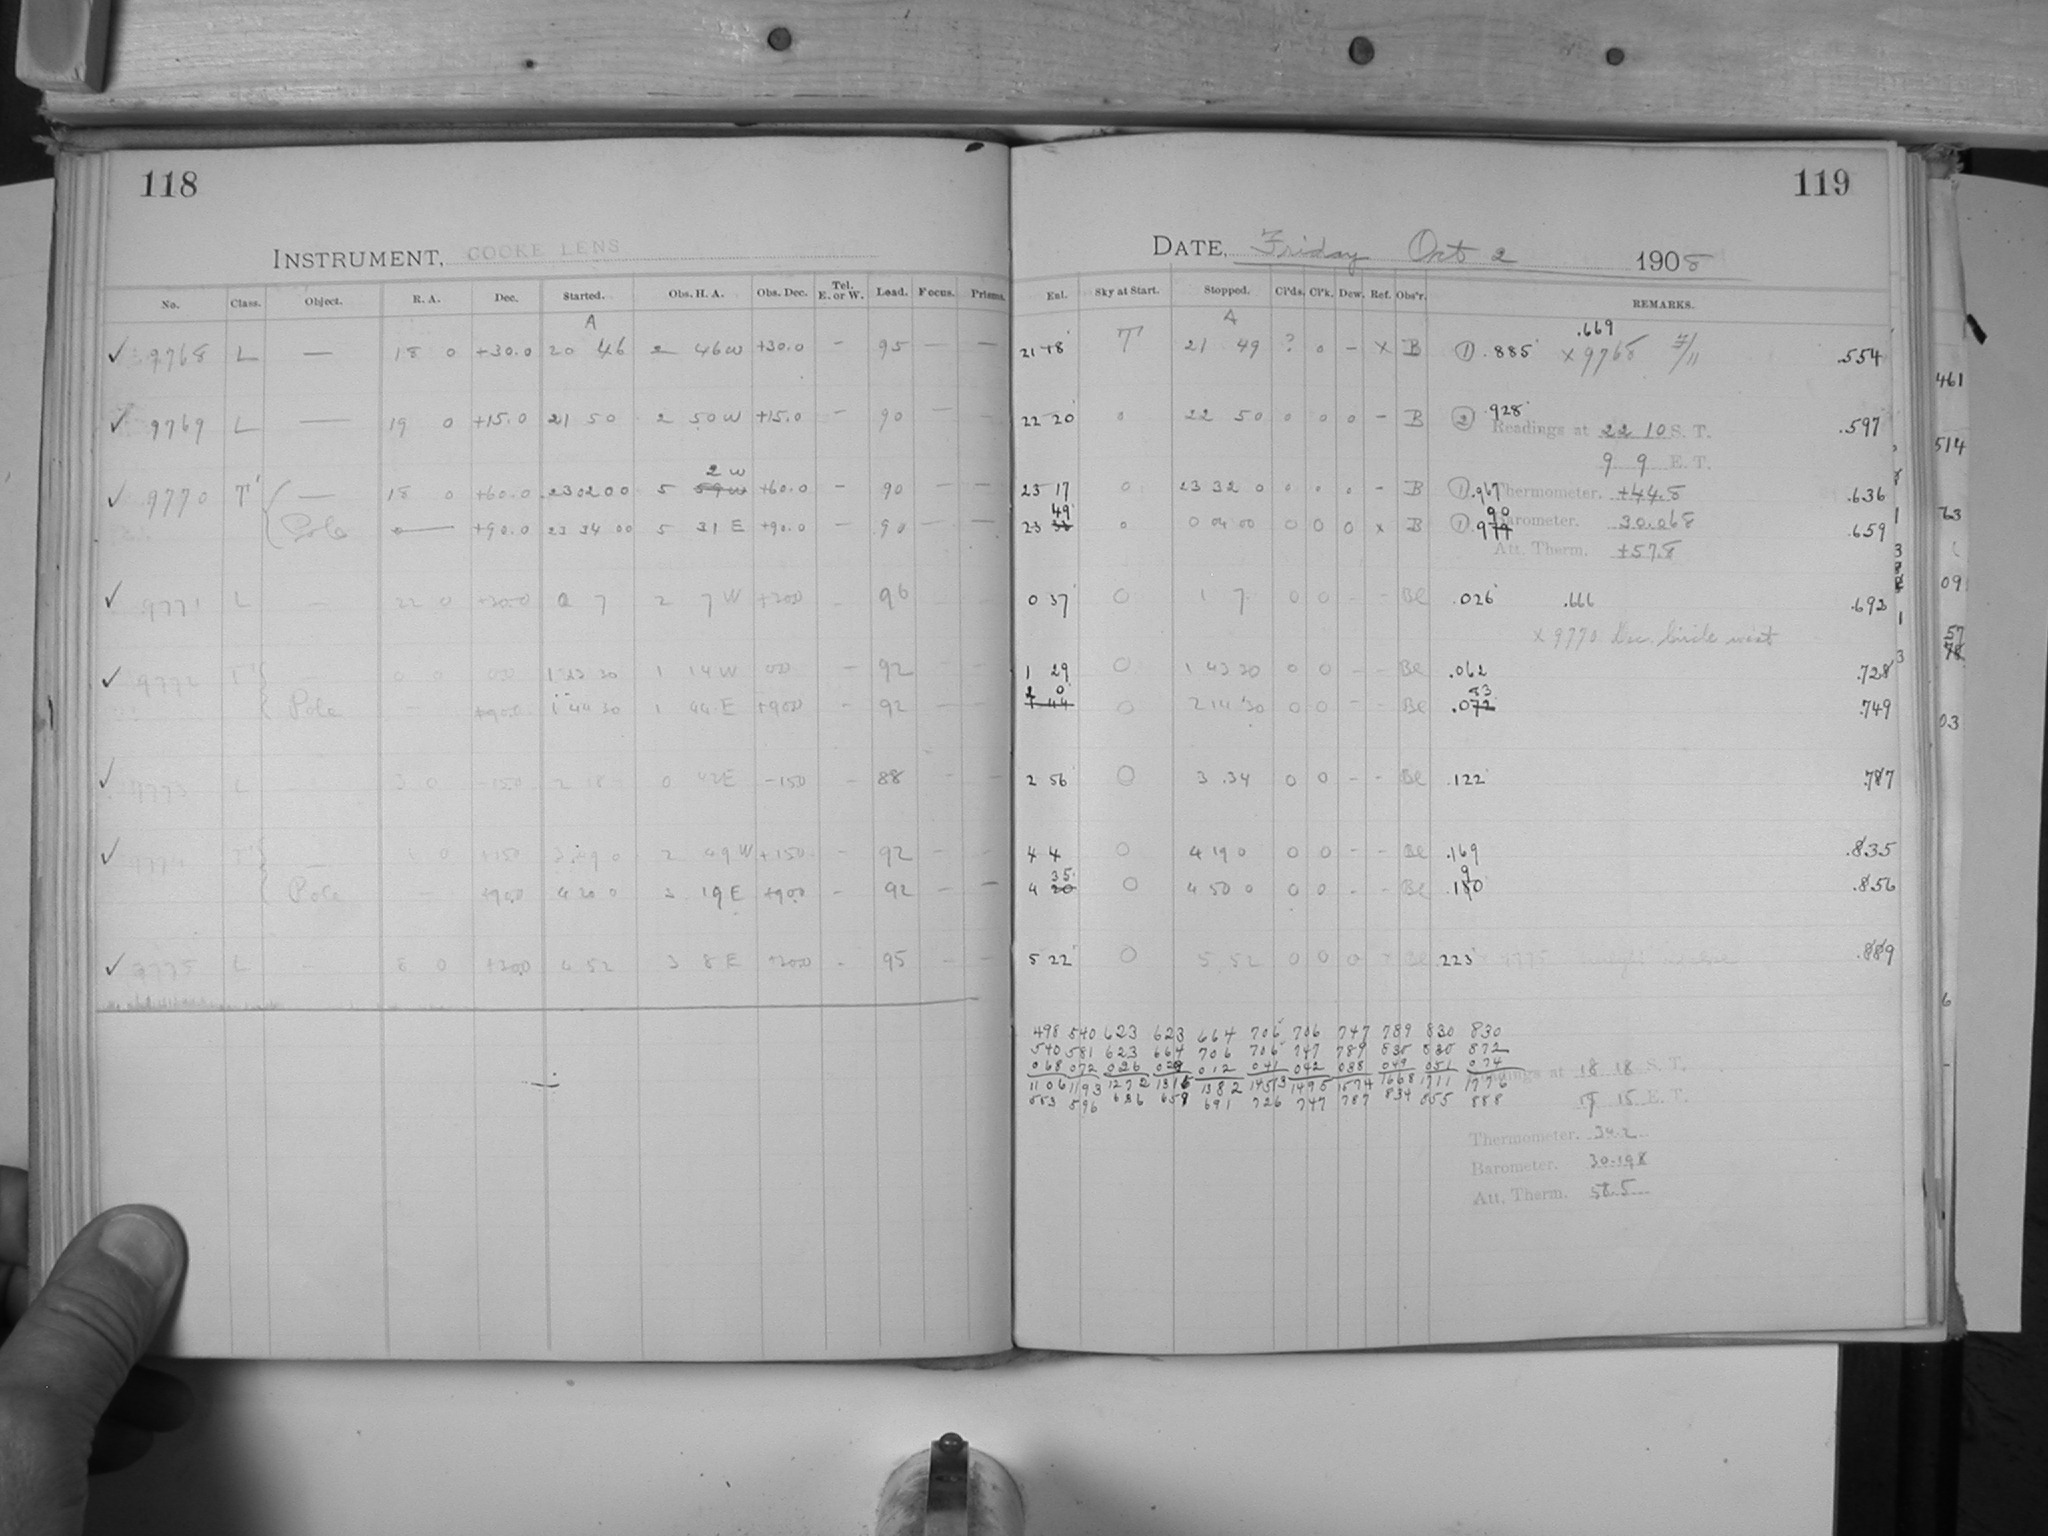 118
INSTRUMENT, COOKE LENS
No. Class. Object. R. A. Dec. Started. Obs. H. A. Obs. Dec. Tel. E. or W. Load. Focus. Prisms.
A
✓ 9768 L — 18 0 +30.0 20 46 2 46W +30.0 – 95 — —
✓ 9769 L — 19 0 +15.0 21 50 2 50W +15.0 – 90 — —
2 W
✓ 9770 T' — 18 0 +60.0 23 02 00 5 59W +60.0 – 90 — —
Pole — +90.0 23 34 00 5 31 E +90.0 – 90 — —
✓ 9771 L — 22 0 +30.0 0 7 2 7 W +30.0 – 96
✓ 9772 T' — 0 0 00 1 13 30 1 14 W 00 – 92
Pole — +90.0 1 44 30 1 44 E +90.0 – 92 — —
✓ 9773 L — 3 0 –15.0 2 18 0 42E –15.0 – 88 — —
✓ 9774 T' — 0 +15.0 3 49 0 2 49 W +15.0 – 92 — —
Pole — +90.0 4 20 0 3 19 E +90.0 – 92 — —
✓ 9775 L — 8 0 +30.0 4 52 3 8 E +30.0 – 95 — —
119
DATE, Friday Oct 2 1908
Enl. Sky at Start. Stopped. Cl'ds. Cl'k. Dew. Ref. Obs'r. REMARKS.
A .669
21 18 T' 21 49 ? 0 – x B ① .885 x 9768 .554
22 20 0 22 50 0 0 0 – B ② .928 .597
Readings at 22 10 S. T.
9 9 E. T.
23 17 0 23 32 0 0 0 0 – B ① .967 Thermometer. +44.8 .636
49 90
23 0 0 04 00 0 0 0 x B ① .979 Barometer. 30.068 .659
Att. Therm. +57.8
0 37 0 1 7 0 0 – – Bl .026 .666 .692
x 9770 Dec. circle west
1 29 0 1 43 30 0 0 – – Bl .062 .728
2 0 83
1 44 0 2 14 30 0 0 – – Bl .072 .749
2 56 0 3 34 0 0 – – Bl .122 .787
4 4 0 4 19 0 0 0 – – Bl .169 .835
35 9
4 20 0 4 50 0 0 0 – – Bl .180 .856
5 22 0 5 52 0 0 0 Bl .223 x 9775 .889
498 540 623 623 664 706 706 747 789 830 830
540 581 623 664 706 706 747 789 830 830 872
068 072 026 028 012 041 042 038 049 051 074
1106 1193 1272 1315 1382 1453 1495 1574 1668 1711 1776
553 596 636 659 691 726 747 787 834 855 888
Readings at 18 18 S. T.
15 E. T.
Thermometer. 34.2
Barometer. 30.198
Att. Therm. 58.5
461
514
63
09
57
78
03
6